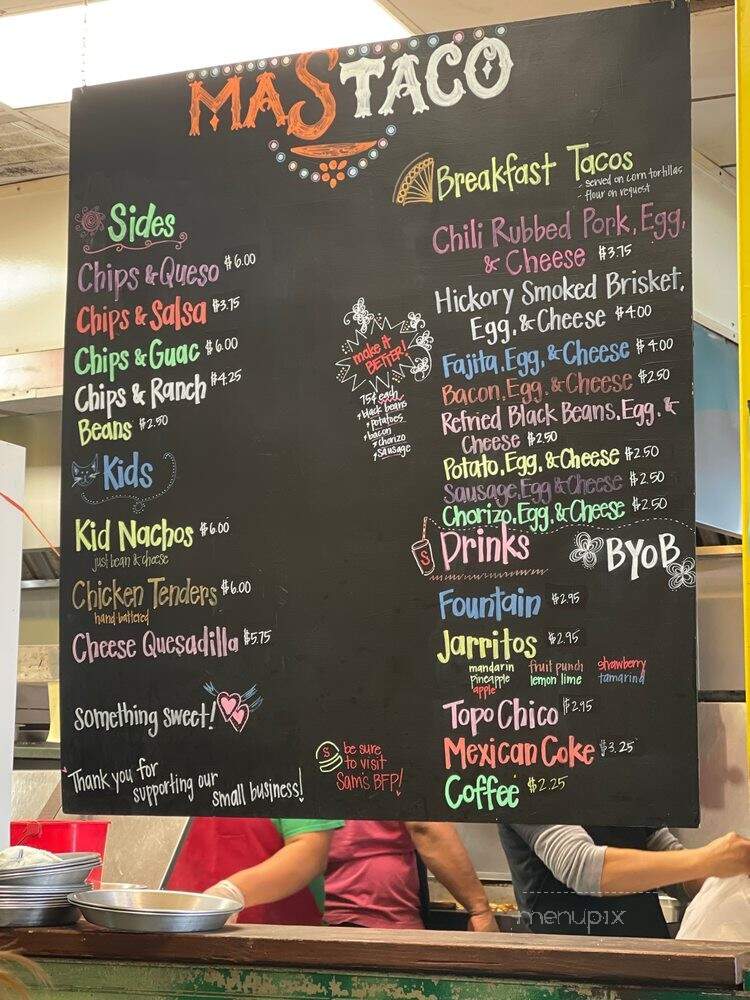 MAS TACO
Sides
Chips & Queso $6.00
Chips & Salsa $3.75
Chips & Guac $6.00
Chips & Ranch $4.25
Beans $2.50
Kids
Kid Nachos $6.00
just bean & cheese
Chicken Tenders $6.00
hand battered
Cheese Quesadilla $5.75
something sweet!
Thank you for
supporting our
small business!
make it
BETTER!
75¢ each
• black beans
• potatoes
• bacon
• chorizo
• sausage
S
be sure
to visit
Sam's BFP!
Breakfast Tacos
- served on corn tortillas
- flour on request
Chili Rubbed Pork, Egg,
& Cheese $3.75
Hickory Smoked Brisket,
Egg, & Cheese $4.00
Fajita, Egg, & Cheese $4.00
Bacon, Egg, & Cheese $2.50
Refried Black Beans, Egg, &
Cheese $2.50
Potato, Egg, & Cheese $2.50
Sausage, Egg & Cheese $2.50
Chorizo, Egg, & Cheese $2.50
S
Drinks
BYOB
Fountain $2.95
Jarritos $2.95
mandarin fruit punch strawberry
pineapple lemon lime tamarind
apple
Topo Chico $2.95
Mexican Coke $3.25
Coffee $2.25
menupix